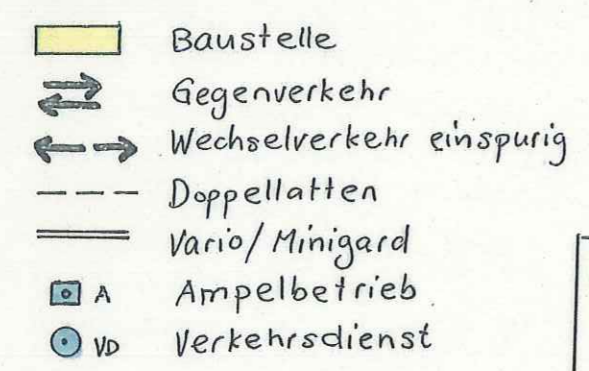 Baustelle
Gegenverkehr
Wechselverkehr einspurig
Doppellatten
Vario/Minigard
A Ampelbetrieb
VD Verkehrsdienst